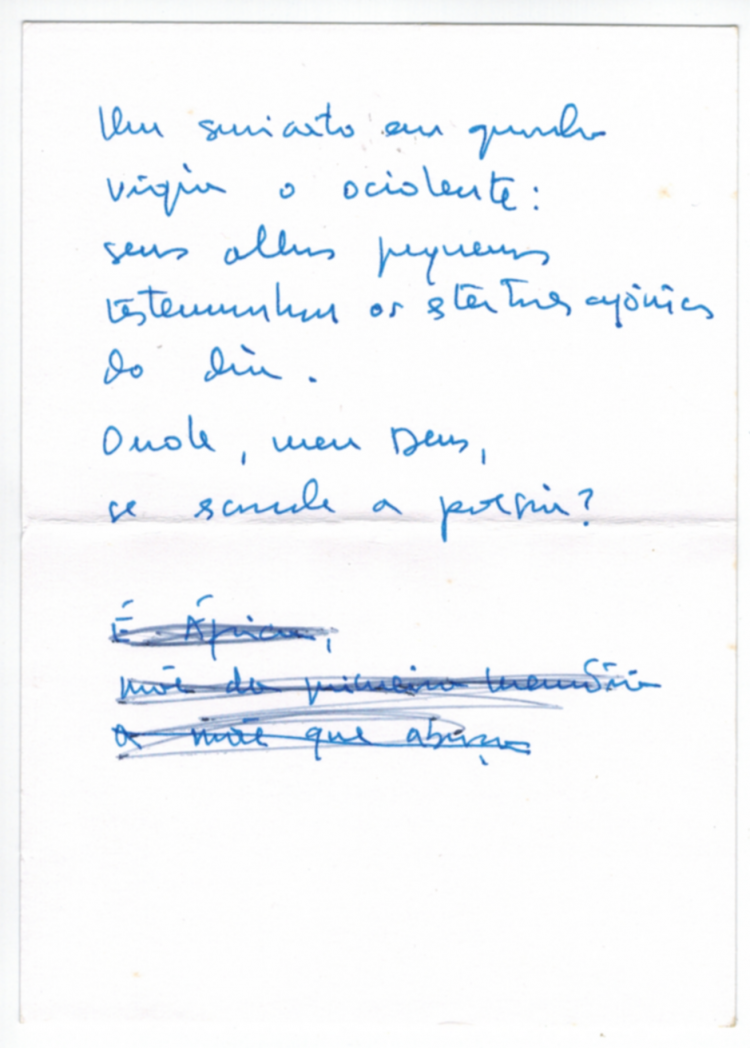 Um suricato em guarda
vigia o ocidente:
seus olhos pequenos
testemunham os estertores agônicos
do dia.
Onde, meu Deus,
se esconde a poesia?
É África,
mãe da primeira memória
a mãe que abraça